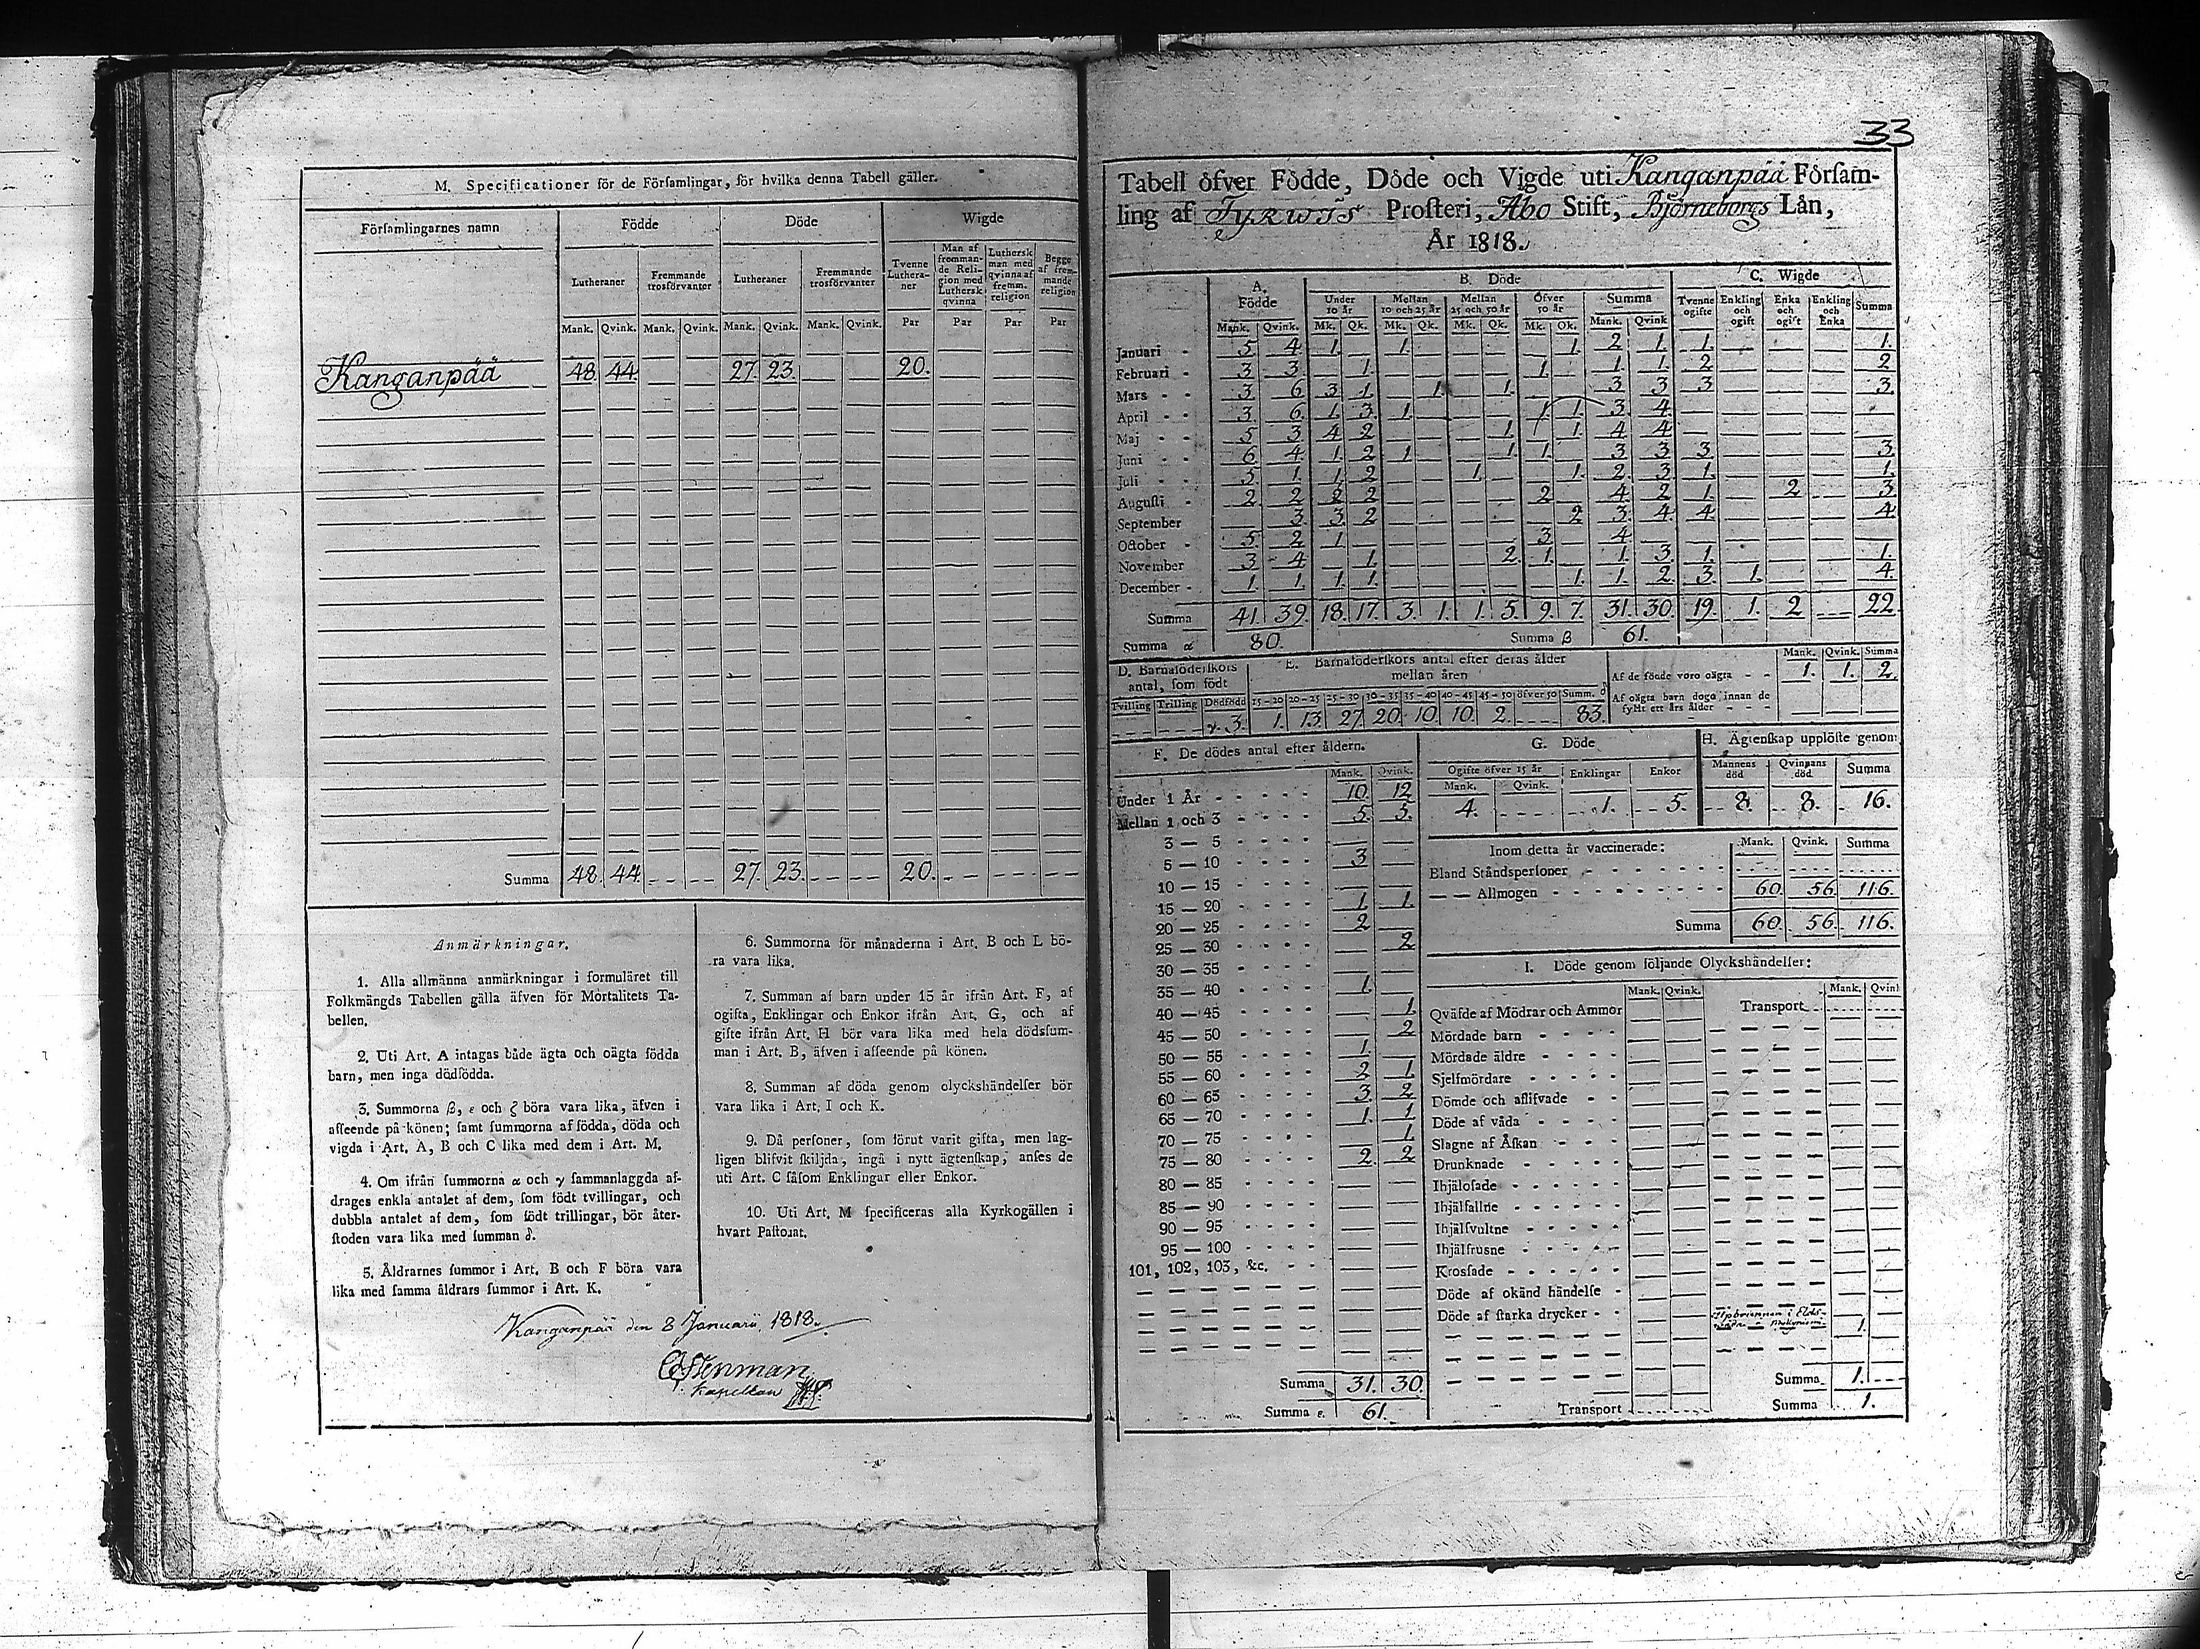 33
M. Specificationer för de Församlingar, för hvilka denna Tabell gäller.
Församlingarnes namn Födde Döde Wigde
Lutheraner Fremmande trosförvanter Lutheraner Fremmande trosförvanter Tvenne Lutheraner Man af fremmande Religion med Luthersk qvinna Luthersk man med qvinna af fremm. religion Begge af fremmande religion
Mank. Qvink. Mank. Qvink. Mank. Qvink. Mank. Qvink. Par Par Par Par
Kanganpää 48 44 27. 23. 20.
Summa 48. 44. 27. 23. 20.
Anmärkningar.
1. Alla allmänna anmärkningar i formuläret till
Folkmängds Tabellen gälla äfven för Mortalitets Ta-
bellen.
2. Uti Art. A intagas både ägta och oägta födda
barn, men inga dödfödda.
3. Summorna ß, ε och ζ böra vara lika, äfven i
afseende på könen; samt summorna af födda, döda och
vigda i Art. A, B och C lika med dem i Art. M.
4. Om ifrån summorna α och γ sammanlaggda af-
drages enkla antalet af dem, som födt tvillingar, och
dubbla antalet af dem, som födt trillingar, bör åter-
stoden vara lika med summan δ.
5. Åldrarnes summor i Art. B och F böra vara
lika med samma åldrars summor i Art. K.
6. Summorna för månaderna i Art. B och L bö-
ra vara lika.
7. Summan af barn under 15 år ifrån Art. F, af
ogifta, Enklingar och Enkor ifrån Art. G, och af
gifte ifrån Art. H bör vara lika med hela dödssum-
man i Art. B, äfven i afseende på könen.
8. Summan af döda genom olyckshändelser bör
vara lika i Art. I och K.
9. Då personer, som förut varit gifta, men lag-
ligen blifvit skiljda, ingå i nytt ägtenskap, anses de
uti Art. C såsom Enklingar eller Enkor.
10. Uti Art. M specificeras alla Kyrkogällen i
hvart Pastorat.
Kanganpää den 8 Januarii, 1818.
Stenman
Kapellan
Tabell öfver Födde, Döde och Vigde uti Kanganpää Försam-
ling af Tyrwis Prosteri, Abo Stift, Björneborgs Län,
År 1818.
A. Födde B. Döde C. Wigde
Under 10 år Mellan 10 och 25 år Mellan 25 och 50 år Öfver 50 år Summa Tvenne ogifte Enkling och ogift Enka och ogift Enkling och Enka Summa
Mank. Qvink. Mk. Qk. Mk. Qk. Mk. Qk. Mk. Qk. Mank. Qvink
Januari 5 4 1. 1. 1. 2 1. 1. 1.
Februari 3 3 1. 1. 1. 1. 2 2
Mars 3 6 3 1. 1. 1. 3 3 3 3.
April 3 6. 1. 3. 1. 1. 1. 3. 4.
Maj 5 3 4 2 1. 1. 4 4
Juni 6 4 1. 2 1 1. 1. 3 3 3 3.
Juli 5 1. 1. 2 1. 1. 2 3 1. 1.
Augusti 2 2 2 2 2 4 2 1. 2 3
September 3. 3. 2 2 3 4. 4. 4.
October 5 2 1. 3 4
November 3 4 1. 2. 1. 1. 3 1. 1.
December 1. 1. 1. 1. 1. 1. 2 3. 1. 4.
Summa 41. 39. 18. 17. 3. 1. 1. 5. 9. 7. 31. 30. 19. 1. 2 22.
Summa α 80. Summa ß 61.
D. Barnaföderskors antal, som födt
Tvilling Trilling Dödfödd
γ. 3.
E. Barnaföderskors antal efter deras ålder
mellan åren
15-20 20-25 25-30 30-35 35-40 40-45 45-50 öfver 50 Summ. δ
1. 13. 27. 20. 10. 10. 2. 83.
Mank. Qvink. Summa
Af de födde voro oägta 1. 1. 2.
Af oägta barn dogo innan de
fyllt ett års ålder
F. De dödes antal efter åldern.
Mank. Qvink.
Under 1 År 10. 12
Mellan 1 och 3 5. 5.
3 — 5
5 — 10 3
10 — 15
15 — 20 1. 1.
20 — 25 2
25 — 30 2
30 — 35
35 — 40 1.
40 — 45 1.
45 — 50 2
50 — 55 1.
55 — 60 2 1.
60 — 65 3 2
65 — 70 1. 1.
70 — 75 1.
75 — 80 2. 2
80 — 85
85 — 90
90 — 95
95 — 100
101, 102, 103, &c.
Summa 31. 30.
Summa ε. 61.
G. Döde
Ogifte öfver 15 år Enklingar Enkor
Mank. Qvink.
4. 1. 5.
H. Ägtenskap upplöste genom
Mannens död Qvinnans död Summa
8. 8. 16.
Inom detta år vaccinerade: Mank. Qvink. Summa
Bland Ståndspersoner
— — Allmogen 60. 56. 116.
Summa 60. 56. 116.
I. Döde genom följande Olyckshändelser:
Mank. Qvink. Mank. Qvink
Qväfde af Mödrar och Ammor Transport
Mördade barn
Mördade äldre
Sjelfmördare
Dömde och aflifvade
Döde af våda
Slagne af Åskan
Drunknade
Ihjälofade
Ihjälfallne
Ihjälsvultne
Ihjälfrusne
Krossade
Döde af okänd händelse
Döde af starka drycker
1.
Summa 1.
Transport Summa 1.